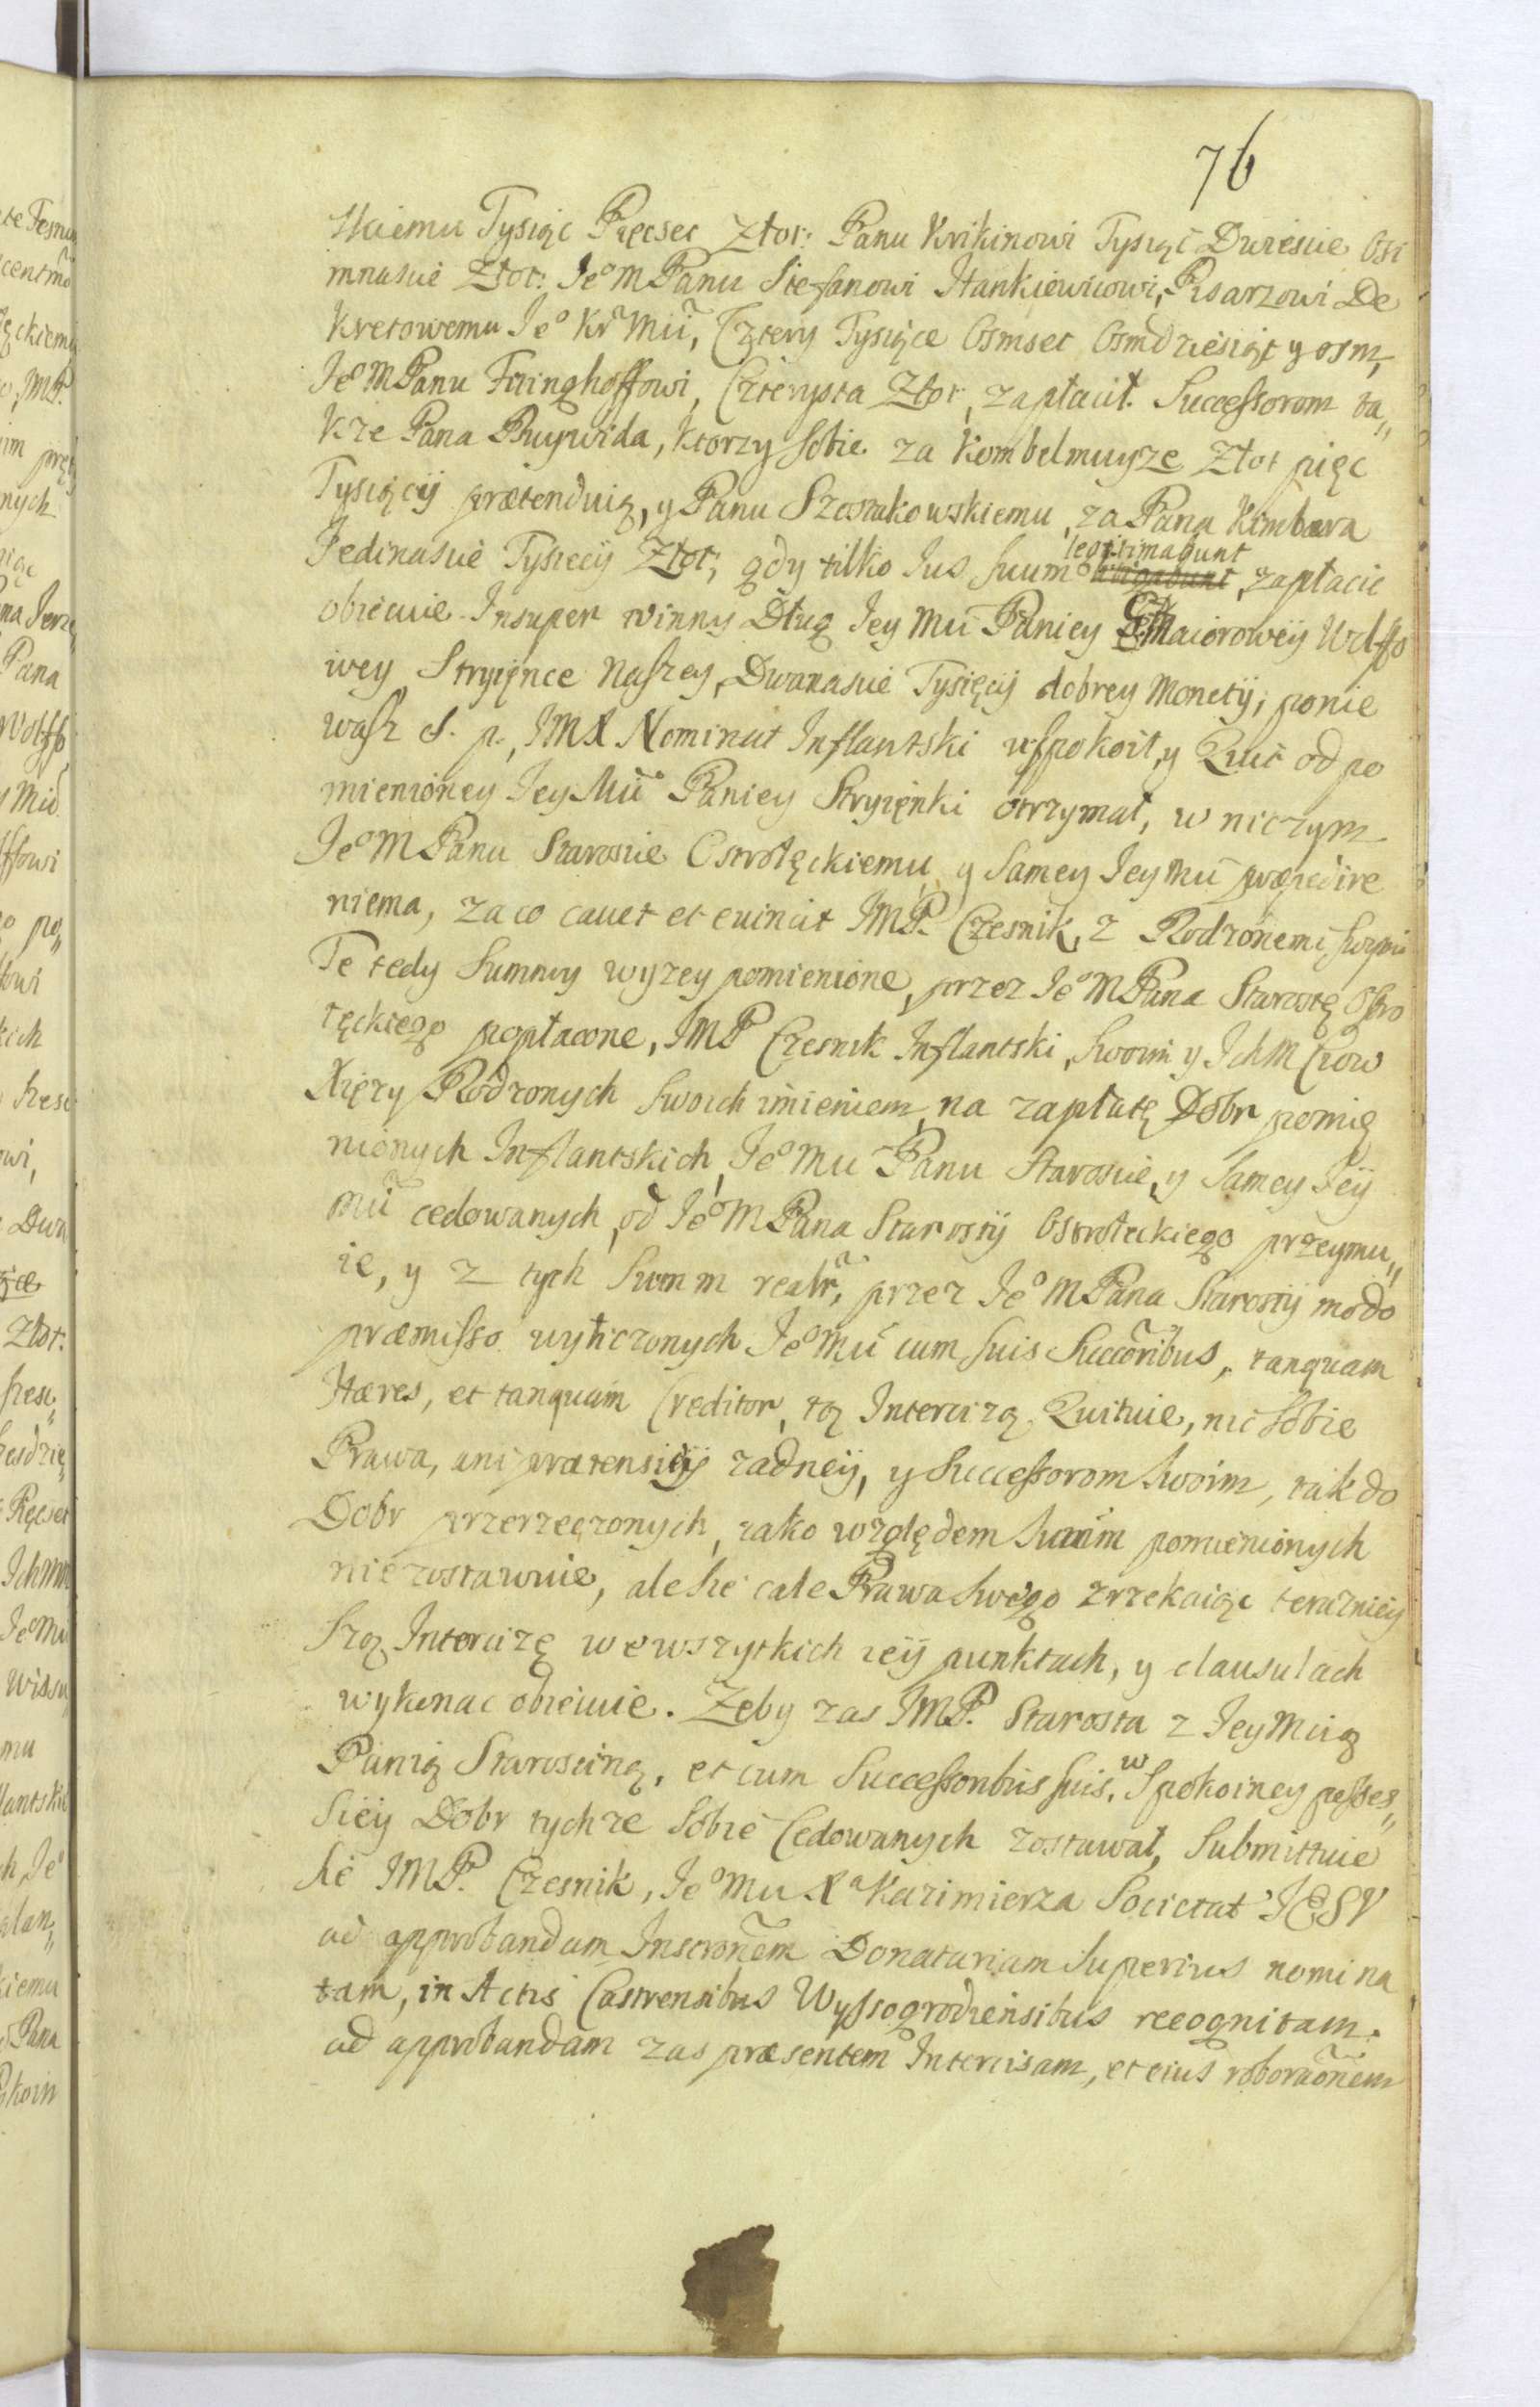 76
skiemu Tysiąc Pięcset Złot: Panu Krikinowi Tysiąc Dwiescie Osi
mnascie Złot: Je⁰ M Panu Stefanowi Stankiewicowi, Pisarzowi De
kretowemu Je⁰ Kr Mci, Cztery Tysiące Osmset Osmdziesiąt y osm,
Je⁰ M Panu Fitinghoffowi, Czterysta Złot, zapłacił. Successorom ta„
kze Pana Ruywida, ktorzy sobie za Kombelmuyze Złot pięc
Tysięcÿ prætenduią, y Panu Szostakowskiemu, za Pana Kimbara
Jedinascie Tysiecÿ Złot; gdy tilko Jus suum legitimabunt, zapłacic
obiecuie. Insuper winny Dług Jey Mci Paniey Maiorowÿ Wolffo
wey Stryięnce Naszey, Dwanascie Tysięcÿ dobrey Monetÿ, ponie
wasz S. p. JMX Nominat Inflantski uspokoił, y Quit od po
mienioney Jey Mci Paniey Stryięnki otrzymał, w niczym
Je⁰ M Panu Staroscie Ostrołęckiemu y samey Jey Mci præpedire
niema, za co cavet et evincit JMP. Czesnik, z Rodzonemi swymi
Te tedy Summy wyzey pomienione, przez Je⁰ M Pana Starostę Ostro
łęckiego popłacone, JMP Czesnik Inflantski, swoim y Ich M Ciow
Xięzy Rodzonych swoich imieniem, na zapłatę Dobr pomię
nionych Inflantskich, Je⁰ Mci Panu Staroscie, y samey Jeÿ
Mci cedowanych, od Je⁰ M Pana Starostÿ Ostrołeckiego przeymu„
ie, y z tych Summ realr, przez Je⁰ M Pana Starostÿ modo
præmisso wyliczonych Je⁰ Mci cum suis Succoribus, tanquam
Hæres, et tanquam Creditor, tą Intercizą Quituie, nic sobie
Prawa, ani prætensÿi zadneÿ, y Successorom swoim, tak do
Dobr przerzeczonych, iako względem Summ pomienionych
nie zostawuie, ale sie cale Prawa swego zrzekaiąc teraznieÿ
szą Intercizę we wszytkich ieÿ punktach, y clausulach
wykonac obiecuie. Zeby zas JMP. Starosta z Jey Mcią
Panią Starosciną, et cum Successoribus suis, w spokoiney posses„
sieÿ Dobr tychze sobie Cedowanych zostawał, submittuie
sie JMP. Czesnik, Je⁰ Mci Xa Kazimierza Societat JESV
ad approbandam Inscronem Donatariam superius nomina
tam, in Actis Castrensibus Wyssogrodiensibus recognitam.
ad approbandam zas præsentem Intercisam, et eius roboraonem